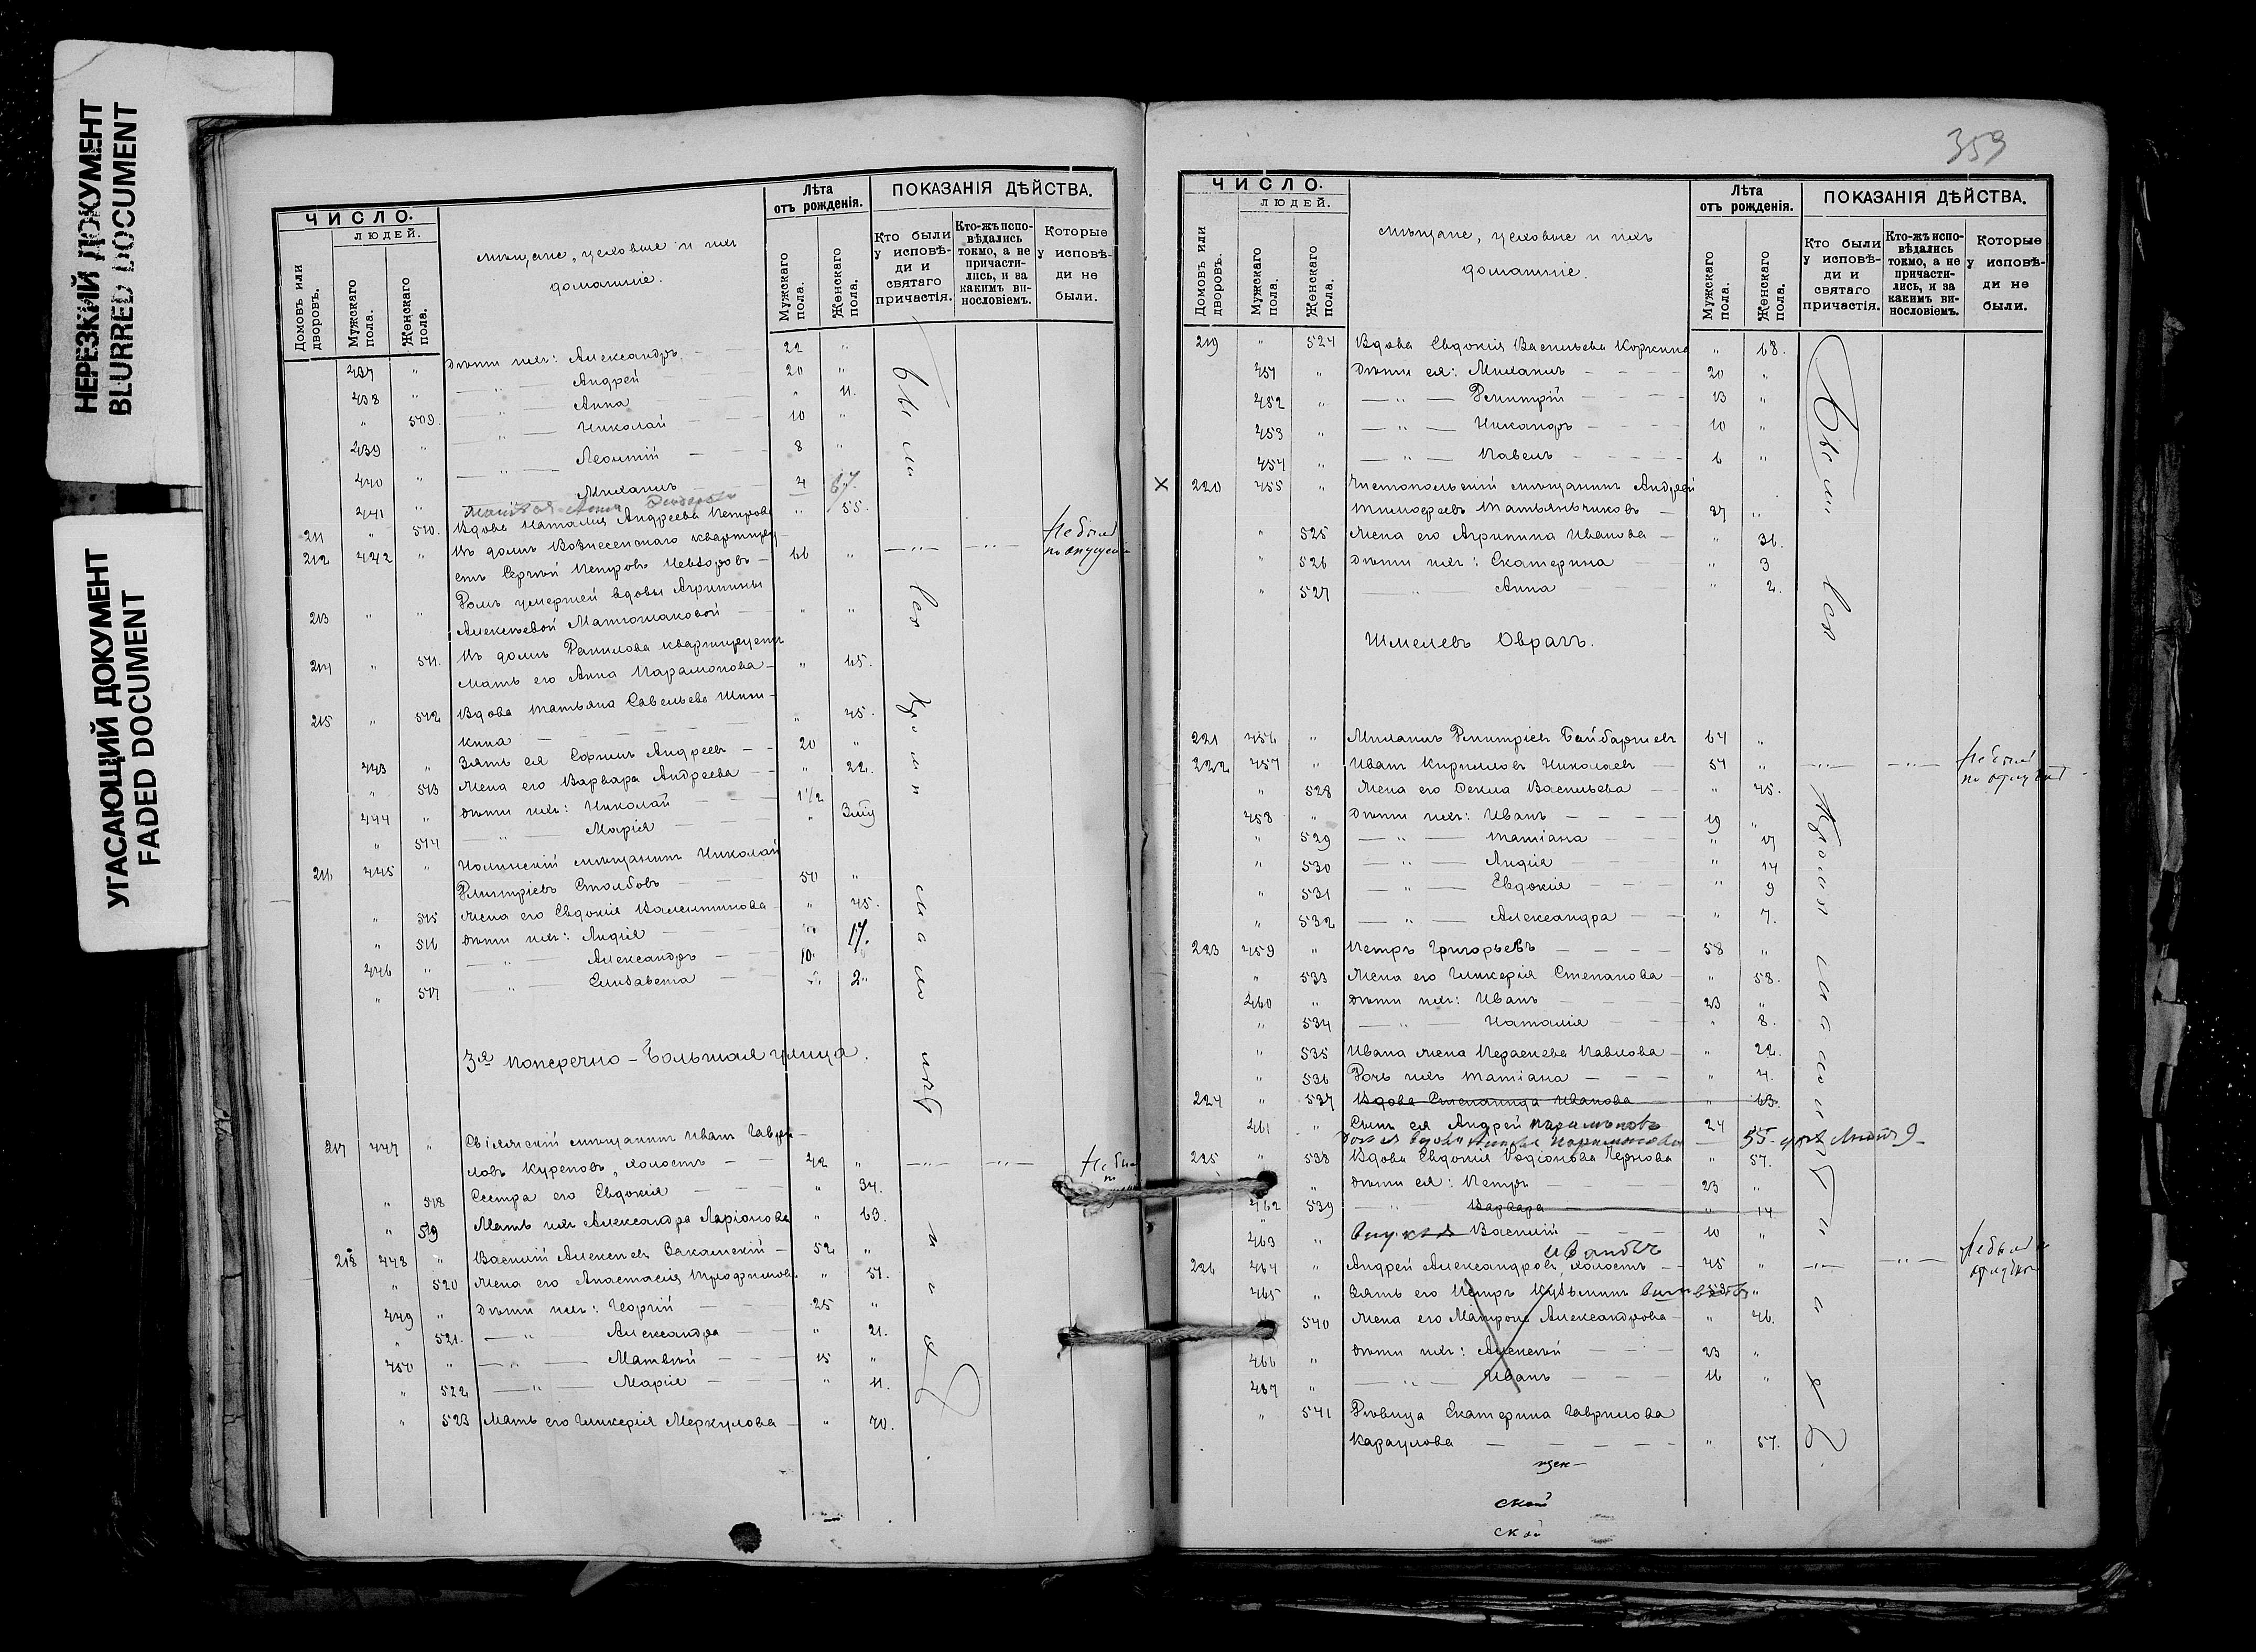 НЕРЕЗКИЙ ДОКУМЕНТ
BLURRED DOCUMENT
УГАСАЮЩИЙ ДОКУМЕНТ
FADED DOCUMENT
ЧИСЛО.
ЛЮДЕЙ.
Домовъ или дворовъ.
Мужскаго пола.
Женскаго пола.
мѣщане, цеховые и ихъ
домашніе.
Лѣта
отъ рожденія.
Мужскаго пола.
Женскаго пола.
ПОКАЗАНІЯ ДѢЙСТВА.
Кто были у исповѣди и святаго причастія.
Кто-жъ исповѣдались токмо, а не причастились, и за какимъ винословіемъ.
Которые у исповѣди не были.
437 " Дѣти ихъ: Александръ 22 "
438 " Андрей 20 "
" 509. Анна " 11.
439 " Николай 10 "
440 " Леонтій 8 "
441 " Михаилъ 4
67.
211 " 510. Вдова Наталія Андреева Петрова " 55.
212 442 " Въ домѣ Вознесенскаго квартиру
етъ Сергѣй Петровъ 66 " Не былъ
по опущенію
213 " " Домъ умершей вдовы Агриппины
Алексѣевой Матюшаковой " "
214 " 511. Въ домѣ Данилова квартируетъ
мать его Анна Парамонова " 65.
215 " 512 Вдова Татьяна Савельева Шиш-
кина " 45.
443 " Зять ея Ефимъ Андреевъ 20 "
" 513 Жена его Варвара Андреева " 22.
444 " Дѣти ихъ: Николай 1 1/2
" 514 Марія " 3
216 445 " Нолинскій мѣщанинъ Николай
Дмитріевъ Столбовъ 50 "
" 515 Жена его Евдокія Валентинова " 45.
" 516 Дѣти ихъ: Лидія 17.
446 " Александръ 10.
" 517 Елизавета 2
3я Поперечно-Большая улица.
217 447 " Свіяжскій мѣщанинъ Иванъ Гаври-
ловъ Куреповъ, холостъ 42 " Не былъ
" 518 Сестра его Евдокія " 34.
" 519 Мать ихъ Александра Ларіонова " 63.
218 448 " Василій Алексѣевъ Закамскій 52 "
" 520 Жена его Анастасія Трофимова " 51.
449 " Дѣти ихъ: Георгій 25 "
" 521. Александра " 21.
450 " Матвѣй 15 "
" 522 Марія " 11.
" 523 Мать его Гликерія Меркулова " 70.
359
ЧИСЛО.
ЛЮДЕЙ.
Домовъ или дворовъ.
Мужскаго пола.
Женскаго пола.
мѣщане, цеховые и ихъ
домашніе.
Лѣта
отъ рожденія.
Мужскаго пола.
Женскаго пола.
ПОКАЗАНІЯ ДѢЙСТВА.
Кто были у исповѣди и святаго причастія.
Кто-жъ исповѣдались токмо, а не причастились, и за какимъ винословіемъ.
Которые у исповѣди не были.
219 " 524 Вдова Евдокія Васильева Коркина " 68.
451 " Дѣти ея: Михаилъ 20 "
452 " Димитрій 13 "
453 " Никаноръ 10 "
454 " Павелъ 6 "
× 220 455 " Чистопольскій мѣщанинъ Андрей
Тимофеевъ Татьянчиковъ 27 "
" 525 Жена его Агрипина Иванова " 36.
" 526 Дѣти ихъ: Екатерина " 3
" 527 Анна " 2.
Шмелевъ Оврагъ.
221 456 " Михаилъ Дмитріевъ Байбаршевъ 64 "
222 457 " Иванъ Кирилловъ Николаевъ 54 " Не былъ
по опущенію
" 528 Жена его Ѳекла Васильева " 45.
458 " Дѣти ихъ: Иванъ 19 "
" 529 Татіана " 17
" 530 Лидія " 14
" 531 Евдокія " 9
" 532 Александра " 7.
223 459 " Петръ Григорьевъ 58 "
" 533 Жена его Гликерія Степанова " 58.
460 " Дѣти ихъ: Иванъ 23 "
" 534 Наталія " 8.
" 535 Ивана жена Параскева Павлова " 22.
" 536 Дочь ихъ Татіана " 4.
224 " 537 Вдова Степанида Иванова " 63.
461 " Сынъ ея Андрей Парамоновъ 24
55
225 " 538 Вдова Евдокія Родіонова Чернова " 57.
" Дѣти ея: Петръ 23 "
462 539 Варвара " 14
463 " внукъ Василій 10 "
Ивановъ
226 464 " Андрей Александровъ, холостъ 45 " Не былъ
465 " Зять его Петръ Кузьминъ "
540 Жена его Матрона Александрова " 46.
466 " Дѣти ихъ: Алексѣй 23 "
467 " Иванъ 16 "
" 541 Дѣвица Екатерина Гаврилова
Караулова " 57.
ской
ской